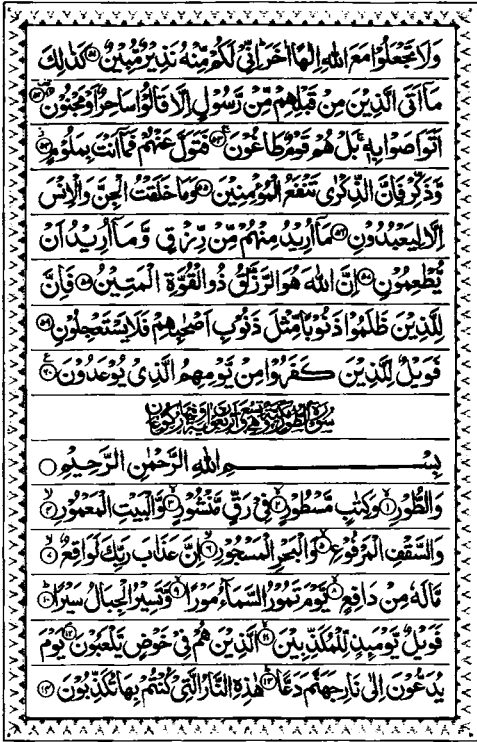 وَلَا تَجْعَلُوْا مَعَ اللّٰهِ اِلٰهًا اٰخَرَ ؕ اِنِّيْ لَكُمْ مِّنْهُ نَذِيْرٌ مُّبِيْنٌ ﴿۵۱﴾ كَذٰلِكَ
مَاۤ اَتَى الَّذِيْنَ مِنْ قَبْلِهِمْ مِّنْ رَّسُوْلٍ اِلَّا قَالُوْا سَاحِرٌ اَوْ مَجْنُوْنٌ ﴿۵۲﴾
اَتَوَاصَوْا بِهٖ ۚ بَلْ هُمْ قَوْمٌ طَاغُوْنَ ﴿۵۳﴾ فَتَوَلَّ عَنْهُمْ فَمَاۤ اَنْتَ بِمَلُوْمٍ ﴿۵۴﴾
وَّذَكِّرْ فَاِنَّ الذِّكْرٰى تَنْفَعُ الْمُؤْمِنِيْنَ ﴿۵۵﴾ وَمَا خَلَقْتُ الْجِنَّ وَالْاِنْسَ
اِلَّا لِيَعْبُدُوْنِ ﴿۵۶﴾ مَاۤ اُرِيْدُ مِنْهُمْ مِّنْ رِّزْقٍ وَّمَاۤ اُرِيْدُ اَنْ
يُّطْعِمُوْنِ ﴿۵۷﴾ اِنَّ اللّٰهَ هُوَ الرَّزَّاقُ ذُو الْقُوَّةِ الْمَتِيْنُ ﴿۵۸﴾ فَاِنَّ
لِلَّذِيْنَ ظَلَمُوْا ذَنُوْبًا مِّثْلَ ذَنُوْبِ اَصْحٰبِهِمْ فَلَا يَسْتَعْجِلُوْنِ ﴿۵۹﴾
فَوَيْلٌ لِّلَّذِيْنَ كَفَرُوْا مِنْ يَّوْمِهِمُ الَّذِيْ يُوْعَدُوْنَ ﴿۶۰﴾
سُوْرَةُ الطُّوْرِ مَكِّيَّةٌ وَّهِيَ تِسْعٌ وَّاَرْبَعُوْنَ اٰيَةً
بِسْمِ اللّٰهِ الرَّحْمٰنِ الرَّحِيْمِ
وَالطُّوْرِ ﴿۱﴾ وَكِتٰبٍ مَّسْطُوْرٍ ﴿۲﴾ فِيْ رَقٍّ مَّنْشُوْرٍ ﴿۳﴾ وَّالْبَيْتِ الْمَعْمُوْرِ ﴿۴﴾
وَالسَّقْفِ الْمَرْفُوْعِ ﴿۵﴾ وَالْبَحْرِ الْمَسْجُوْرِ ﴿۶﴾ اِنَّ عَذَابَ رَبِّكَ لَوَاقِعٌ ﴿۷﴾
مَّا لَهٗ مِنْ دَافِعٍ ﴿۸﴾ يَّوْمَ تَمُوْرُ السَّمَآءُ مَوْرًا ﴿۹﴾ وَّتَسِيْرُ الْجِبَالُ سَيْرًا ﴿۱۰﴾
فَوَيْلٌ يَّوْمَئِذٍ لِّلْمُكَذِّبِيْنَ ﴿۱۱﴾ الَّذِيْنَ هُمْ فِيْ خَوْضٍ يَّلْعَبُوْنَ ﴿۱۲﴾ يَوْمَ
يُدَعُّوْنَ اِلٰى نَارِ جَهَنَّمَ دَعًّا ﴿۱۳﴾ هٰذِهِ النَّارُ الَّتِيْ كُنْتُمْ بِهَا تُكَذِّبُوْنَ ﴿۱۴﴾